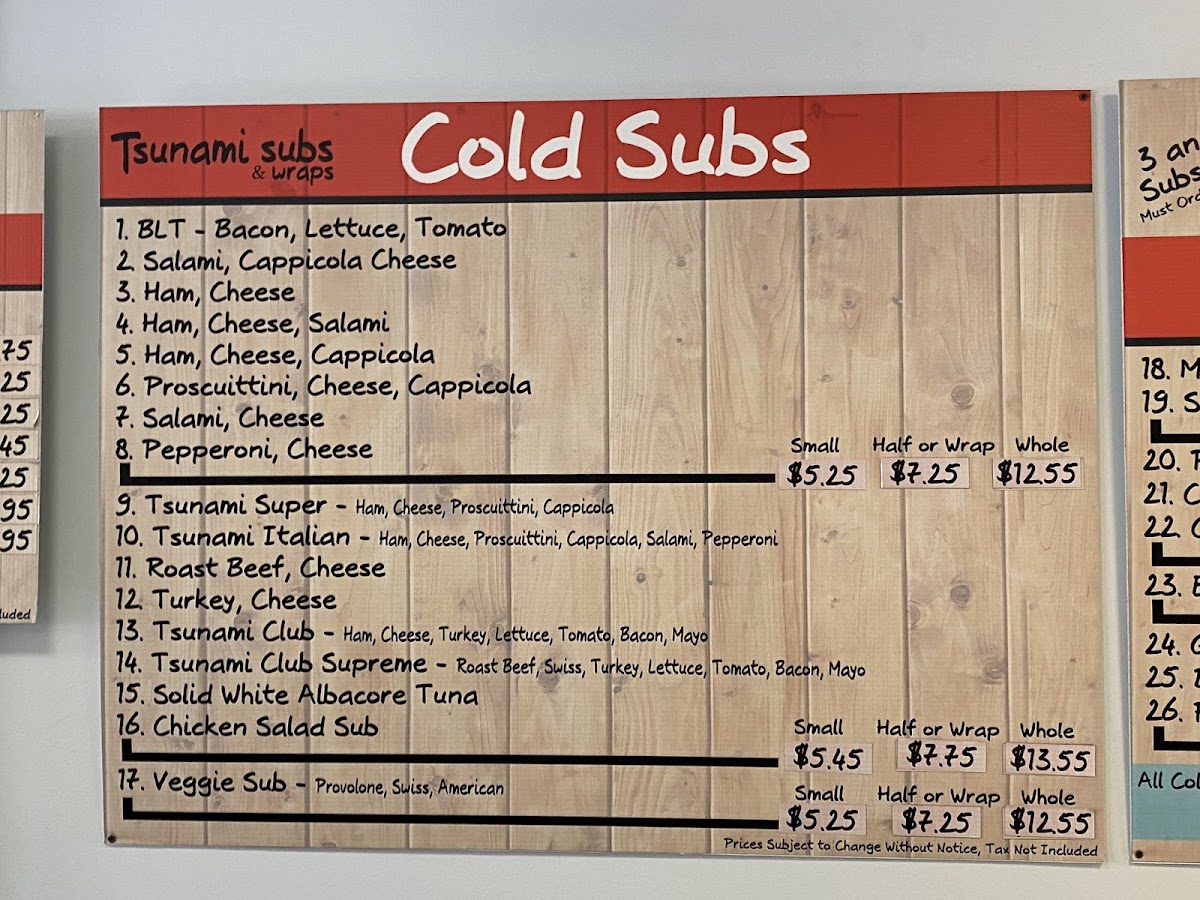 Tsunami subs
& wraps
Cold Subs
1. BLT - Bacon, Lettuce, Tomato
2. Salami, Cappicola Cheese
3. Ham, Cheese
4. Ham, Cheese, Salami
5. Ham, Cheese, Cappicola
6. Proscuittini, Cheese, Cappicola
7. Salami, Cheese
8. Pepperoni, Cheese
Small Half or Wrap Whole
$5.25 $7.25 $12.55
9. Tsunami Super - Ham, Cheese, Proscuittini, Cappicola
10. Tsunami Italian - Ham, Cheese, Proscuittini, Cappicola, Salami, Pepperoni
11. Roast Beef, Cheese
12. Turkey, Cheese
13. Tsunami Club - Ham, Cheese, Turkey, Lettuce, Tomato, Bacon, Mayo
14. Tsunami Club Supreme - Roast Beef, Swiss, Turkey, Lettuce, Tomato, Bacon, Mayo
15. Solid White Albacore Tuna
16. Chicken Salad Sub
Small Half or Wrap Whole
$5.45 $7.75 $13.55
17. Veggie Sub - Provolone, Swiss, American
Small Half or Wrap Whole
$5.25 $7.25 $12.55
Prices Subject to Change Without Notice, Tax Not Included
75
25
25
45
25
95
95
3 an
Subs
Must Ord
18. M
19. S
20.
21. C
22.
23.
24.
25.
26.
All Col